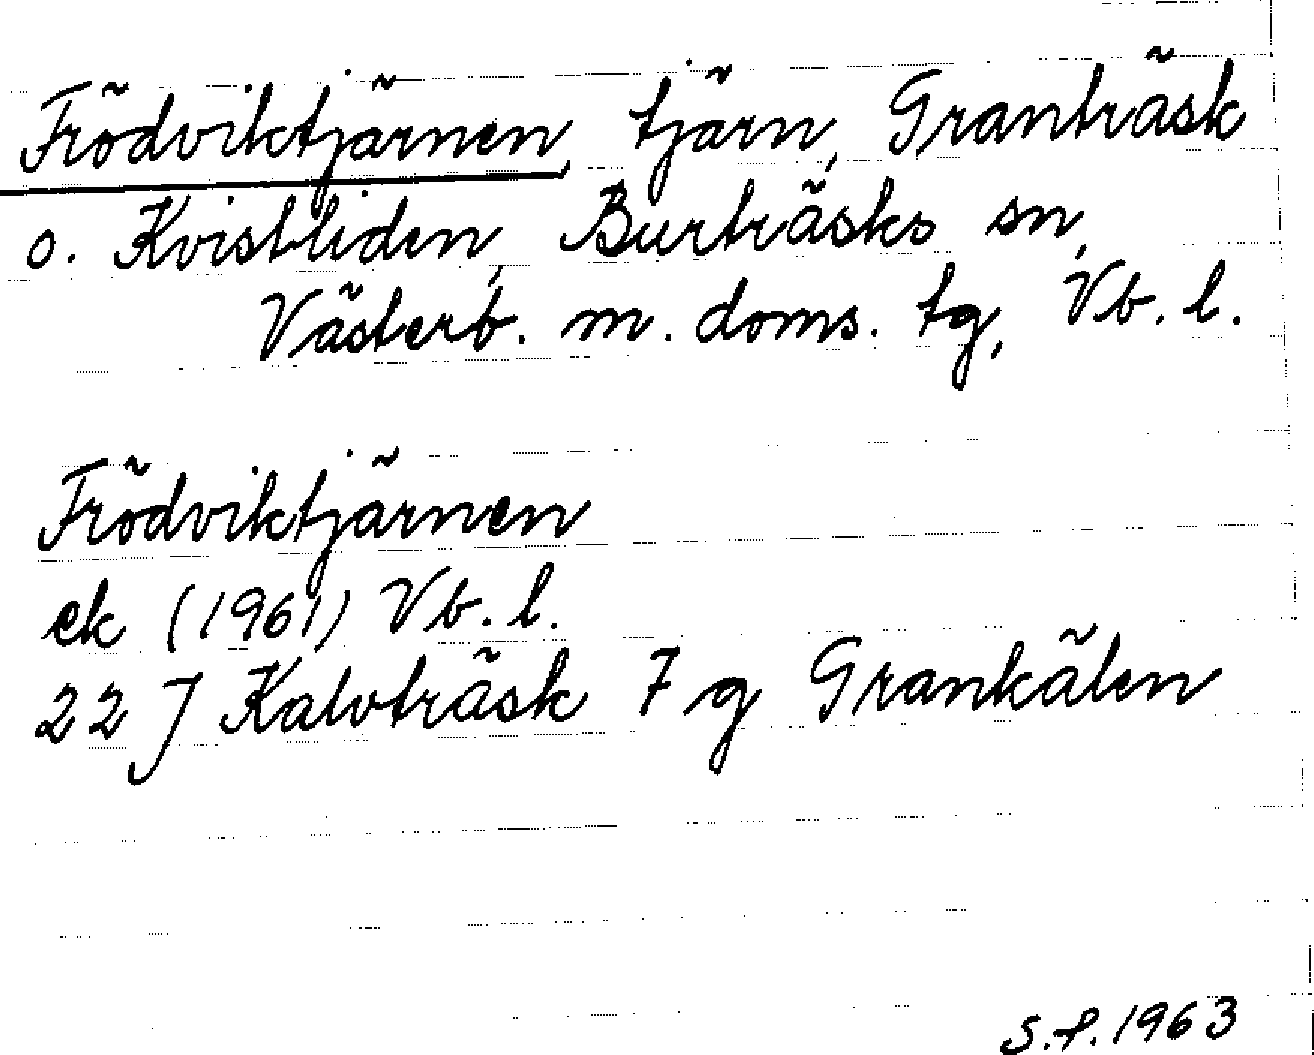 Frödviktjärnen, tjärn, Granträsk
o. Kvistliden, Burträsks sn,
Västerb. m. doms. tg, Vb. l.
Frödviktjärnen
ek (1961) Vb. l.
22 J Kalvträsk 7 g Grankälen
S.P. 1963